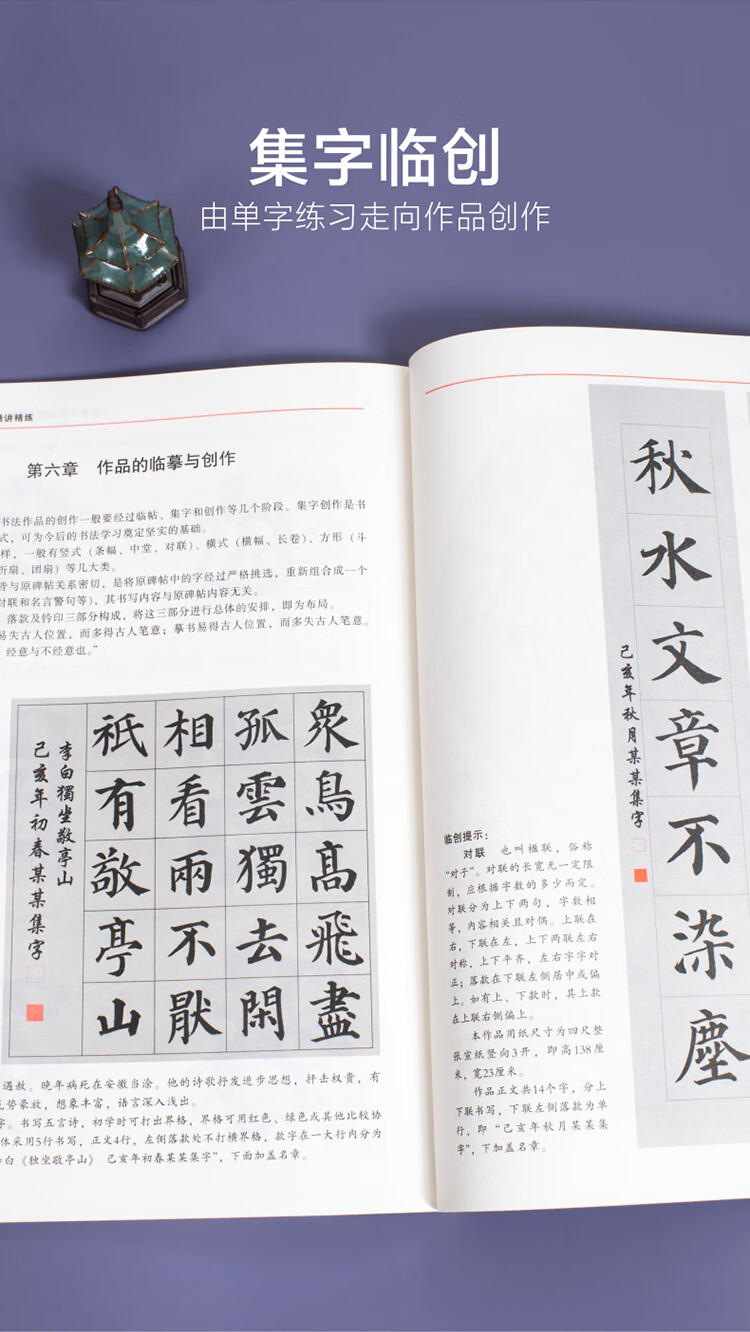 集字临创
由单字练习走向作品创作
精讲精练
第六章 作品的临摹与创作
书法作品的创作一般要经过临帖、集字和创作等几个阶段。集字创作是书
式，可为今后的书法学习奠定坚实的基础。
样，一般有竖式（条幅、中堂、对联）、横式（横幅、长卷）、方形（斗
折扇、团扇）等几大类。
皆与原碑帖关系密切，是将原碑帖中的字经过严格挑选，重新组合成一个
对联和名言警句等），其书写内容与原碑帖内容无关。
、落款及钤印三部分构成，将这三部分进行总体的安排，即为布局。
易失古人位置，而多得古人笔意；摹书易得古人位置，而多失古人笔意。
，经意与不经意也。”
眾鳥高飛盡
孤雲獨去閑
相看兩不厭
祇有敬亭山
李白獨坐敬亭山
己亥年初春某某集字
遇赦。晚年病死在安徽当涂。他的诗歌抒发进步思想，抨击权贵，有
气势豪放，想象丰富，语言深入浅出。
字。书写五言诗，初学时可打出界格，界格可用红色、绿色或其他比较协
体采用5行书写，正文4行，左侧落款处不打横界格，款字在一大行内分为
白《独坐敬亭山》 己亥年初春某某集字”，下面加盖名章。
秋水文章不染塵
己亥年秋月某某集字
临创提示：
对联 也叫楹联，俗称
“对子”。对联的长宽无一定限
制，应根据字数的多少而定。
对联分为上下两句，字数相
等，内容相关且对偶。上联在
右，下联在左，上下两联左右
对称，上下平齐，左右字字对
正；落款在下联左侧居中或偏
上。如有上、下款时，其上款
在上联右侧偏上。
本作品用纸尺寸为四尺整
张宣纸竖向3开，即高138厘
米，宽23厘米。
作品正文共14个字，分上
下联书写，下联左侧落款为单
行，即“己亥年秋月某某集
字”，下加盖名章。